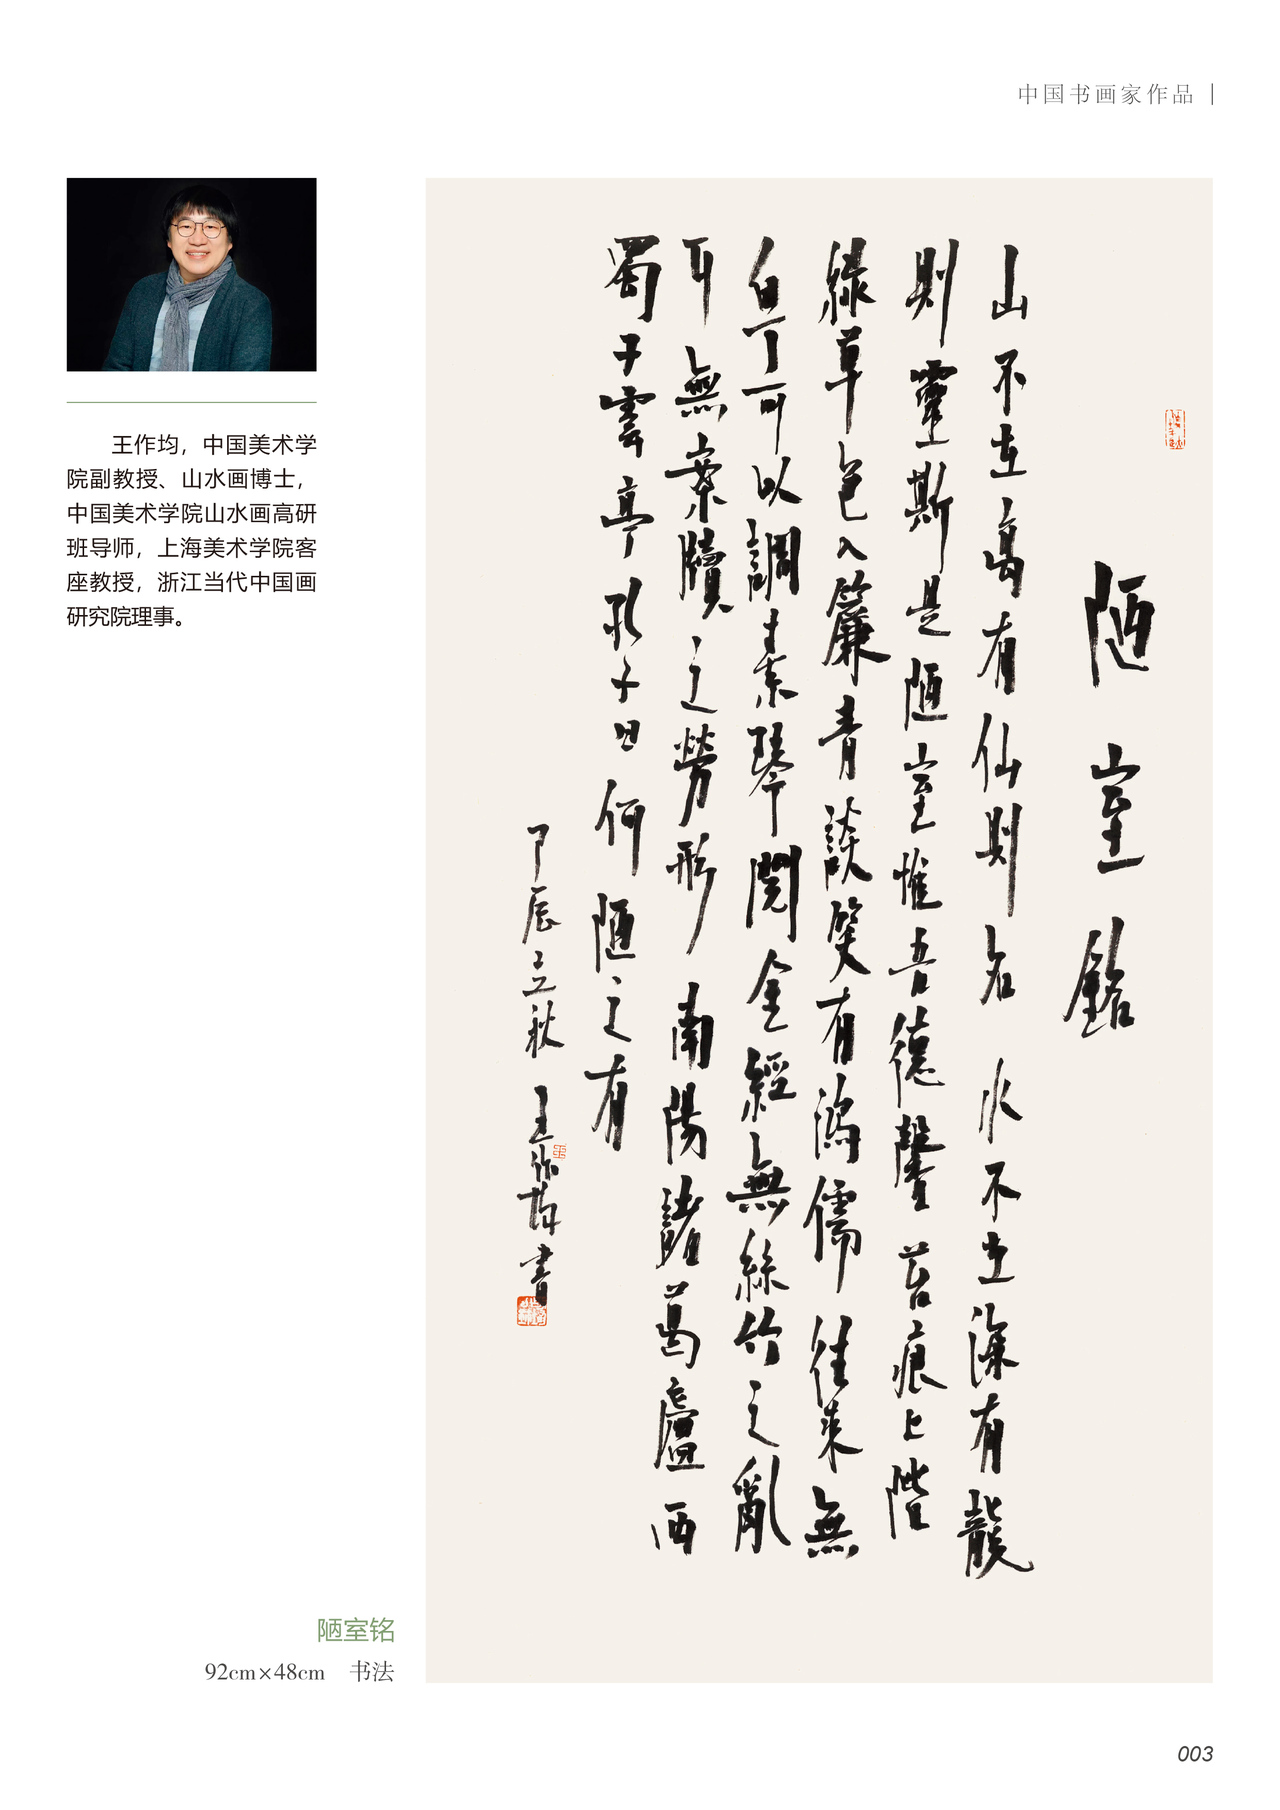 中国书画家作品
王作均，中国美术学
院副教授、山水画博士，
中国美术学院山水画高研
班导师，上海美术学院客
座教授，浙江当代中国画
研究院理事。
陋室銘
山不在高有仙則名水不在深有龍
則靈斯是陋室惟吾德馨苔痕上階
綠草色入簾青談笑有鴻儒往來無
白丁可以調素琴閱金經無絲竹之亂
耳無案牘之勞形南陽諸葛廬西
蜀子雲亭孔子曰何陋之有
甲辰立秋王作均書
陋室铭
92cm×48cm 书法
003